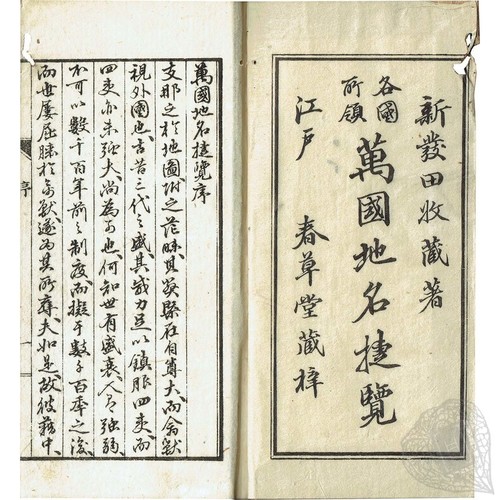 新發田收藏著
各國
所領
萬國地名捷覽
江戶
春草堂藏梓
萬國地名捷覽序
支那之於地圖附之茫昧其在自尊大而禽獸
視外國也古昔三代之盛其威力足以鎮服四夷而
四夷亦未強大尚為可也何知世有盛衰人有強弱
不可以數千百年前之制度而擬于數千百年之後
而世屢屈膝於禽獸遂為其所夫如是故彼籍中
序
一